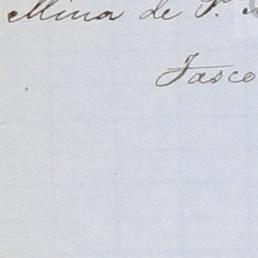 Mina de S.n
Tasco